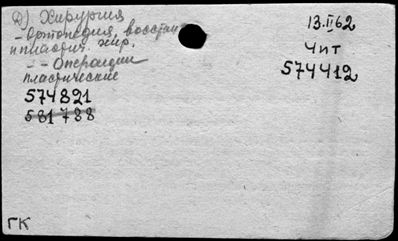 Д) Хирургия
- Ортопедия, восстан
и пластич. хир.
- - Операции
пластические
574821
581788
13.II 62
Чит
574412
ГК